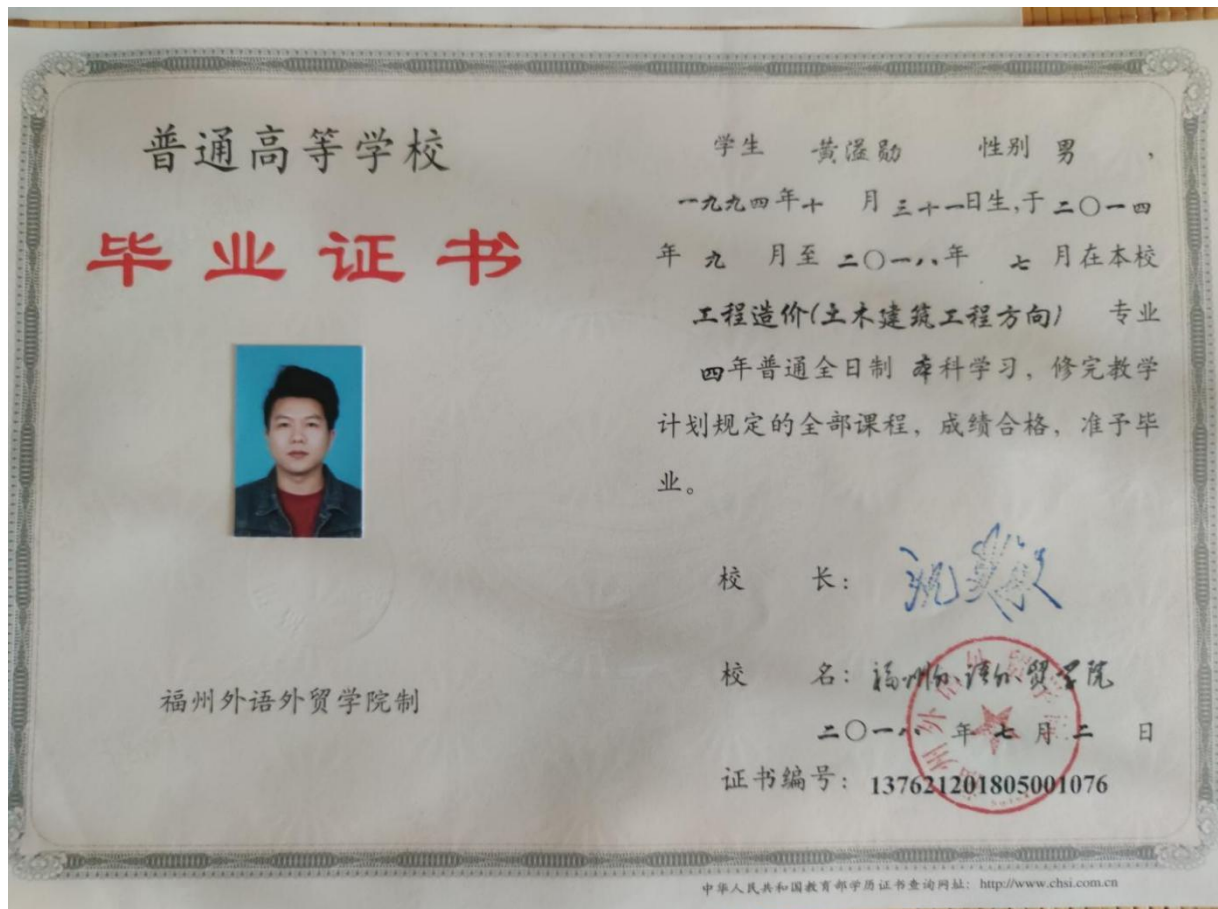 普通高等学校
毕业证书
福州外语外贸学院制
学生 黄溢勋 性别 男 ,
一九九四年十 月 三十一日生,于二〇一四
年 九 月至 二〇一八年 七 月在本校
工程造价(土木建筑工程方向) 专业
四年普通全日制 本科学习，修完教学
计划规定的全部课程，成绩合格，准予毕
业。
校 长：
校 名：福州外语外贸学院
二〇一八 年 七 月 二 日
证书编号：137621201805001076
中华人民共和国教育部学历证书查询网址：http://www.chsi.com.cn